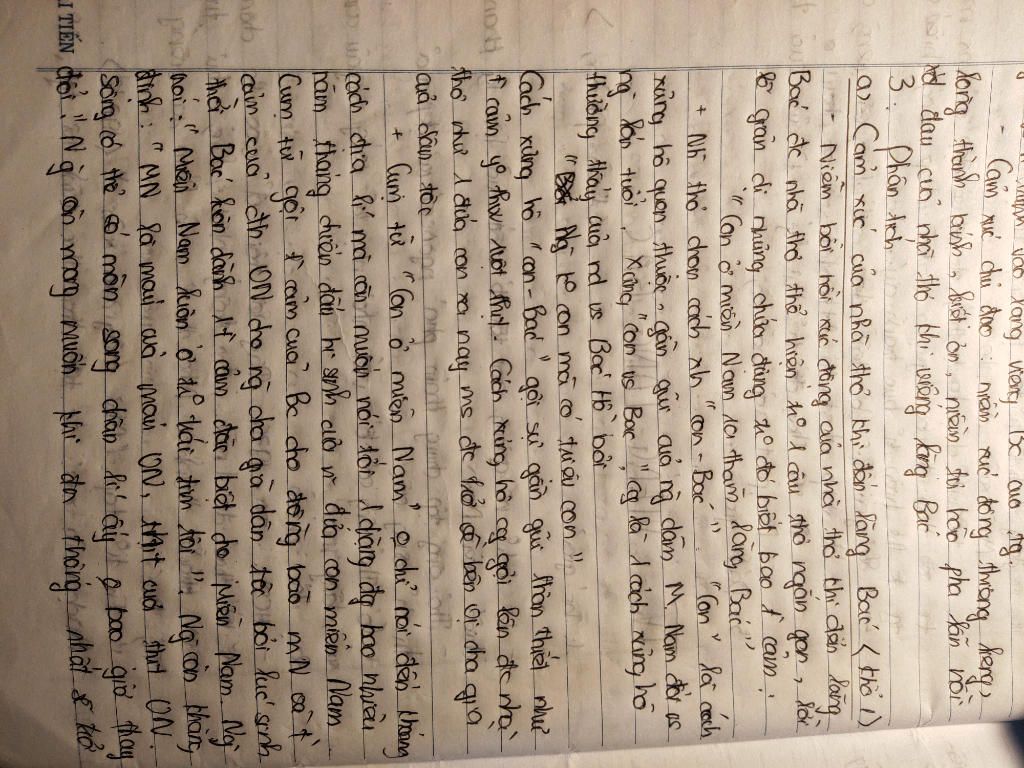 vào lăng viếng Bác của tg.
- Cảm xúc chủ đạo: niềm xúc động thiêng liêng,
lòng thành kính, biết ơn, niềm tự hào pha lẫn nỗi
xót đau của nhà thơ khi viếng lăng Bác
3. Phân tích
a) Cảm xúc của nhà thơ khi đến lăng Bác (khổ 1)
- Niềm bồi hồi xúc động của nhà thơ khi đến lăng
Bác đc nhà thơ thể hiện từ 1 câu thơ ngắn gọn, lời
lẽ giản dị nhưng chứa đựng trg đó biết bao t' cảm:
"Con ở miền Nam ra thăm lăng Bác"
+ Nh thơ chọn cách xh "con - Bác". "Con" là cách
xưng hô quen thuộc, gần gũi của ng dân M. Nam đối vs
ng lớn tuổi, xưng "con vs Bác" cg là 1 cách xưng hô
thường thấy của nd vs Bác Hồ bởi
"Ng ko con mà có triệu con"
Cách xưng hô "con - Bác" gợi sự gần gũi thân thiết như
t' cảm ruột thịt. Cách xưng hô cg gợi lên đc nhà
thơ như 1 đứa con xa nay ms đc trở về bên vị cha già
của dân tộc
+ Cụm từ "Con ở miền Nam" ko chỉ nói đến khoảng
cách địa lí mà còn muốn nói tới 1 chặng đg bao nhiêu
năm tháng chiến đấu hi sinh của ng đứa con miền Nam.
Cụm từ gợi t' cảm của Bc cho đồng bào MN và t'
cảm của đb ĐN cho ng cha già dân tộc bởi lúc sinh
thời Bác luôn dành t' cảm đặc biệt cho Miền Nam. Ng
nói: "Miền Nam luôn ở trg trái tim tôi". Ng còn khẳng
định: "MN là máu của máu VN, thịt của thịt VN.
Sông có thể cạn núi có thể mòn song chân lí ấy ko bao giờ thay
đổi." Ng còn mong muốn khi đn thống nhất sẽ trở